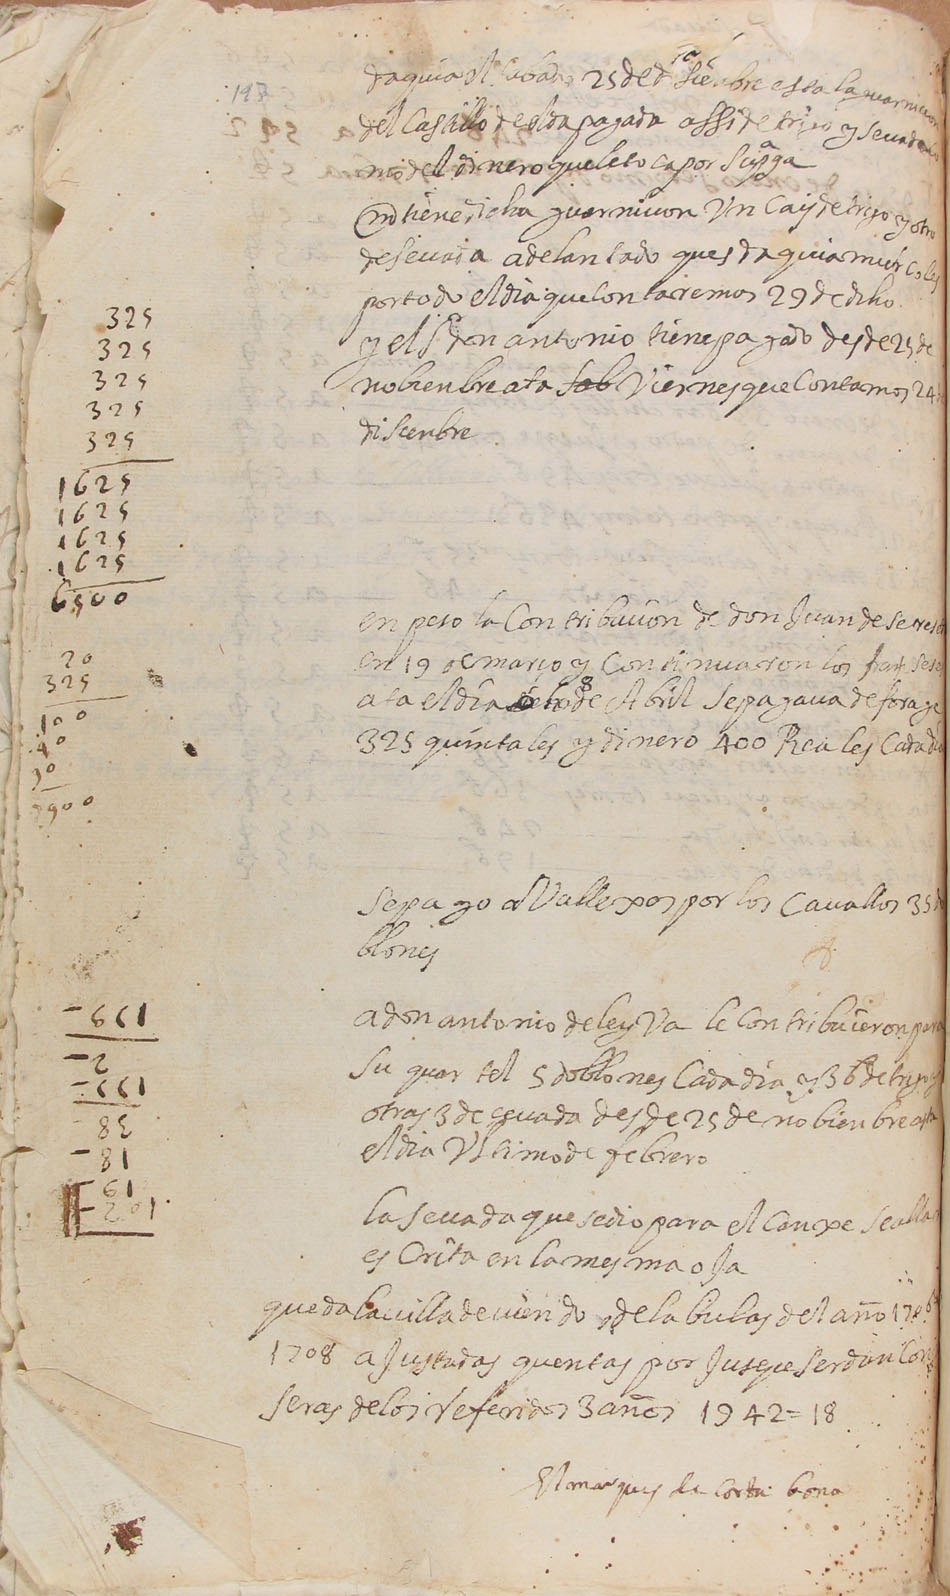 daquia el sabado 25 de disienbre esta la guarnicion
del Castillo de elda pagada assi de trigo y sevada co
mo del dinero que le toca por su paga
tiene dicha guarnicion Un Cais de trigo y otro
de sevada adelantado ques daquia miercoles
por todo el dia que Contaremos 29 de dicho
y el Sr don antonio tiene pagado desde 25 de
nobienbre ata sab Viernes que Contamos 24 de
disienbre
325
325
325
325
325
1625
1625
1625
1625
6500
en peso la Contribucion de don Juan de
en 19 de março y Continuaron los
ata el dia 8 de Abril se pagava de forage
325 quintales y dinero 400 Reales Cada dia
20
325
100
40
se pago a Vallexos por los Cavallos 35 do
blones
a don antonio de leyva le Contribuieron para
su quartel 5 doblones Cada dia y 3 b de trigo y
otras 3 de sevada desde 25 de nobienbre asta
el dia Ultimo de febrero
la sevada que se dio para el Conxe se alla
es Crita en la mesma oja
166-
2-
133-
38-
81-
61-
102-
queda la villa deviendo de la bulas del año 1706
1708 ajustadas quentas por Jusepe Serdan Con
seras de los referidos 3 años 1942=18
El marques de Corta bona